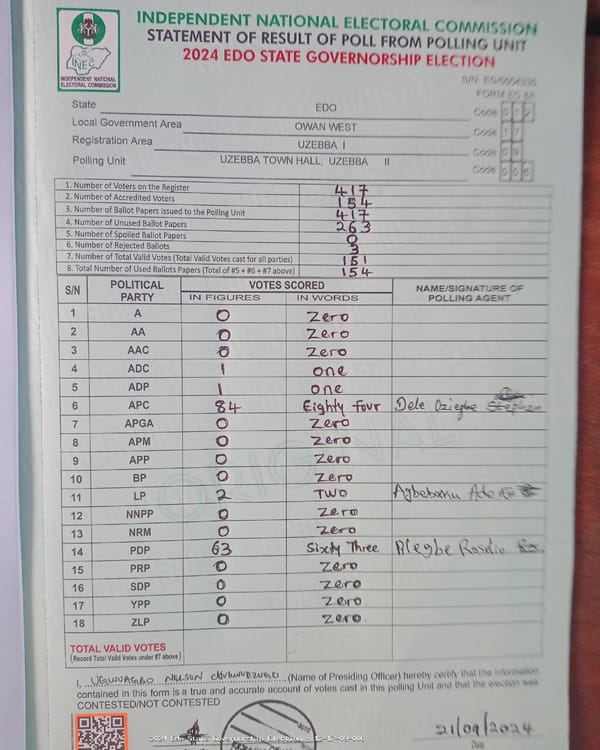 INDEPENDENT NATIONAL ELECTORAL COMMISSION
STATEMENT OF RESULT OF POLL FROM POLLING UNIT
2024 EDO STATE GOVERNORSHIP ELECTION
INEC
INDEPENDENT NATIONAL
ELECTORAL COMMISSION
FORM EC 8A
State EDO Code
Local Government Area OWAN WEST Code 17
Registration Area UZEBBA I Code
Polling Unit UZEBBA TOWN HALL, UZEBBA II Code
1. Number of Voters on the Register 417
2. Number of Accredited Voters 154
3. Number of Ballot Papers Issued to the Polling Unit 417
4. Number of Unused Ballot Papers 263
5. Number of Spoiled Ballot Papers 0
6. Number of Rejected Ballots 3
7. Number of Total Valid Votes (Total Valid Votes cast for all parties) 151
8. Total Number of Used Ballots Papers (Total of #5 + #6 + #7 above) 154
S/N POLITICAL PARTY VOTES SCORED NAME/SIGNATURE OF POLLING AGENT
IN FIGURES IN WORDS
1 A 0 Zero
2 AA 0 Zero
3 AAC 0 Zero
4 ADC 1 one
5 ADP 1 one
6 APC 84 Eighty four Dele
7 APGA 0 Zero
8 APM 0 Zero
9 APP 0 Zero
10 BP 0 Zero
11 LP 2 Two
12 NNPP 0 Zero
13 NRM 0 Zero
14 PDP 63 Sixty Three
15 PRP 0 Zero
16 SDP 0 Zero
17 YPP 0 Zero
18 ZLP 0 Zero
ORIGINAL
TOTAL VALID VOTES
(Record Total Valid Votes under #7 above)
I, NELSON (Name of Presiding Officer) hereby certify that the information
contained in this form is a true and accurate account of votes cast in this polling Unit and that the election was
CONTESTED/NOT CONTESTED
21/09/2024
Date
2024 Edo State Governorship Election - 12-17-09-006